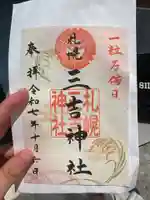 一粒万倍日
札幌
三吉神社
札幌
三吉
神社
奉拝 令和七年十月日